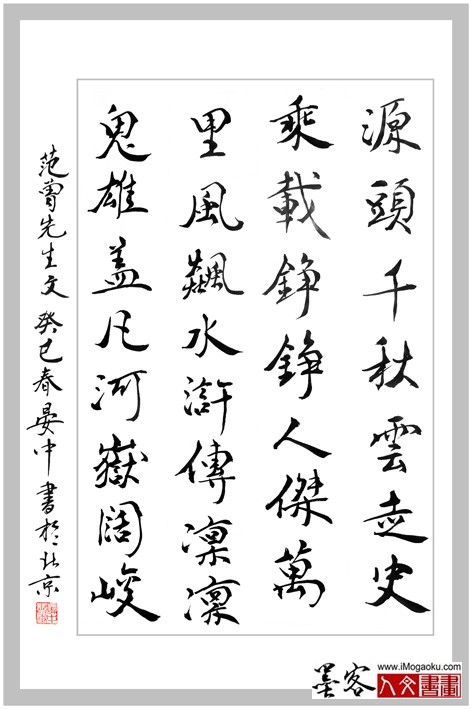 源頭千秋雲走史
乘載錚錚人傑萬
里風飆水滸傳凜凜
鬼雄盖凡河嶽闊峻
范曾先生文 癸巳春晏中書於北京
www.iMogaoku.com
墨客 人文書畫